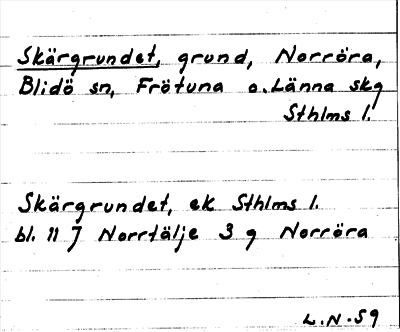 Skärgrundet, grund, Norröra,
Blidö sn, Frötuna o. Länna skg
Sthlms l.
Skärgrundet, ek Sthlms l.
bl. 11 J Norrtälje 3 g Norröra
L.N.59